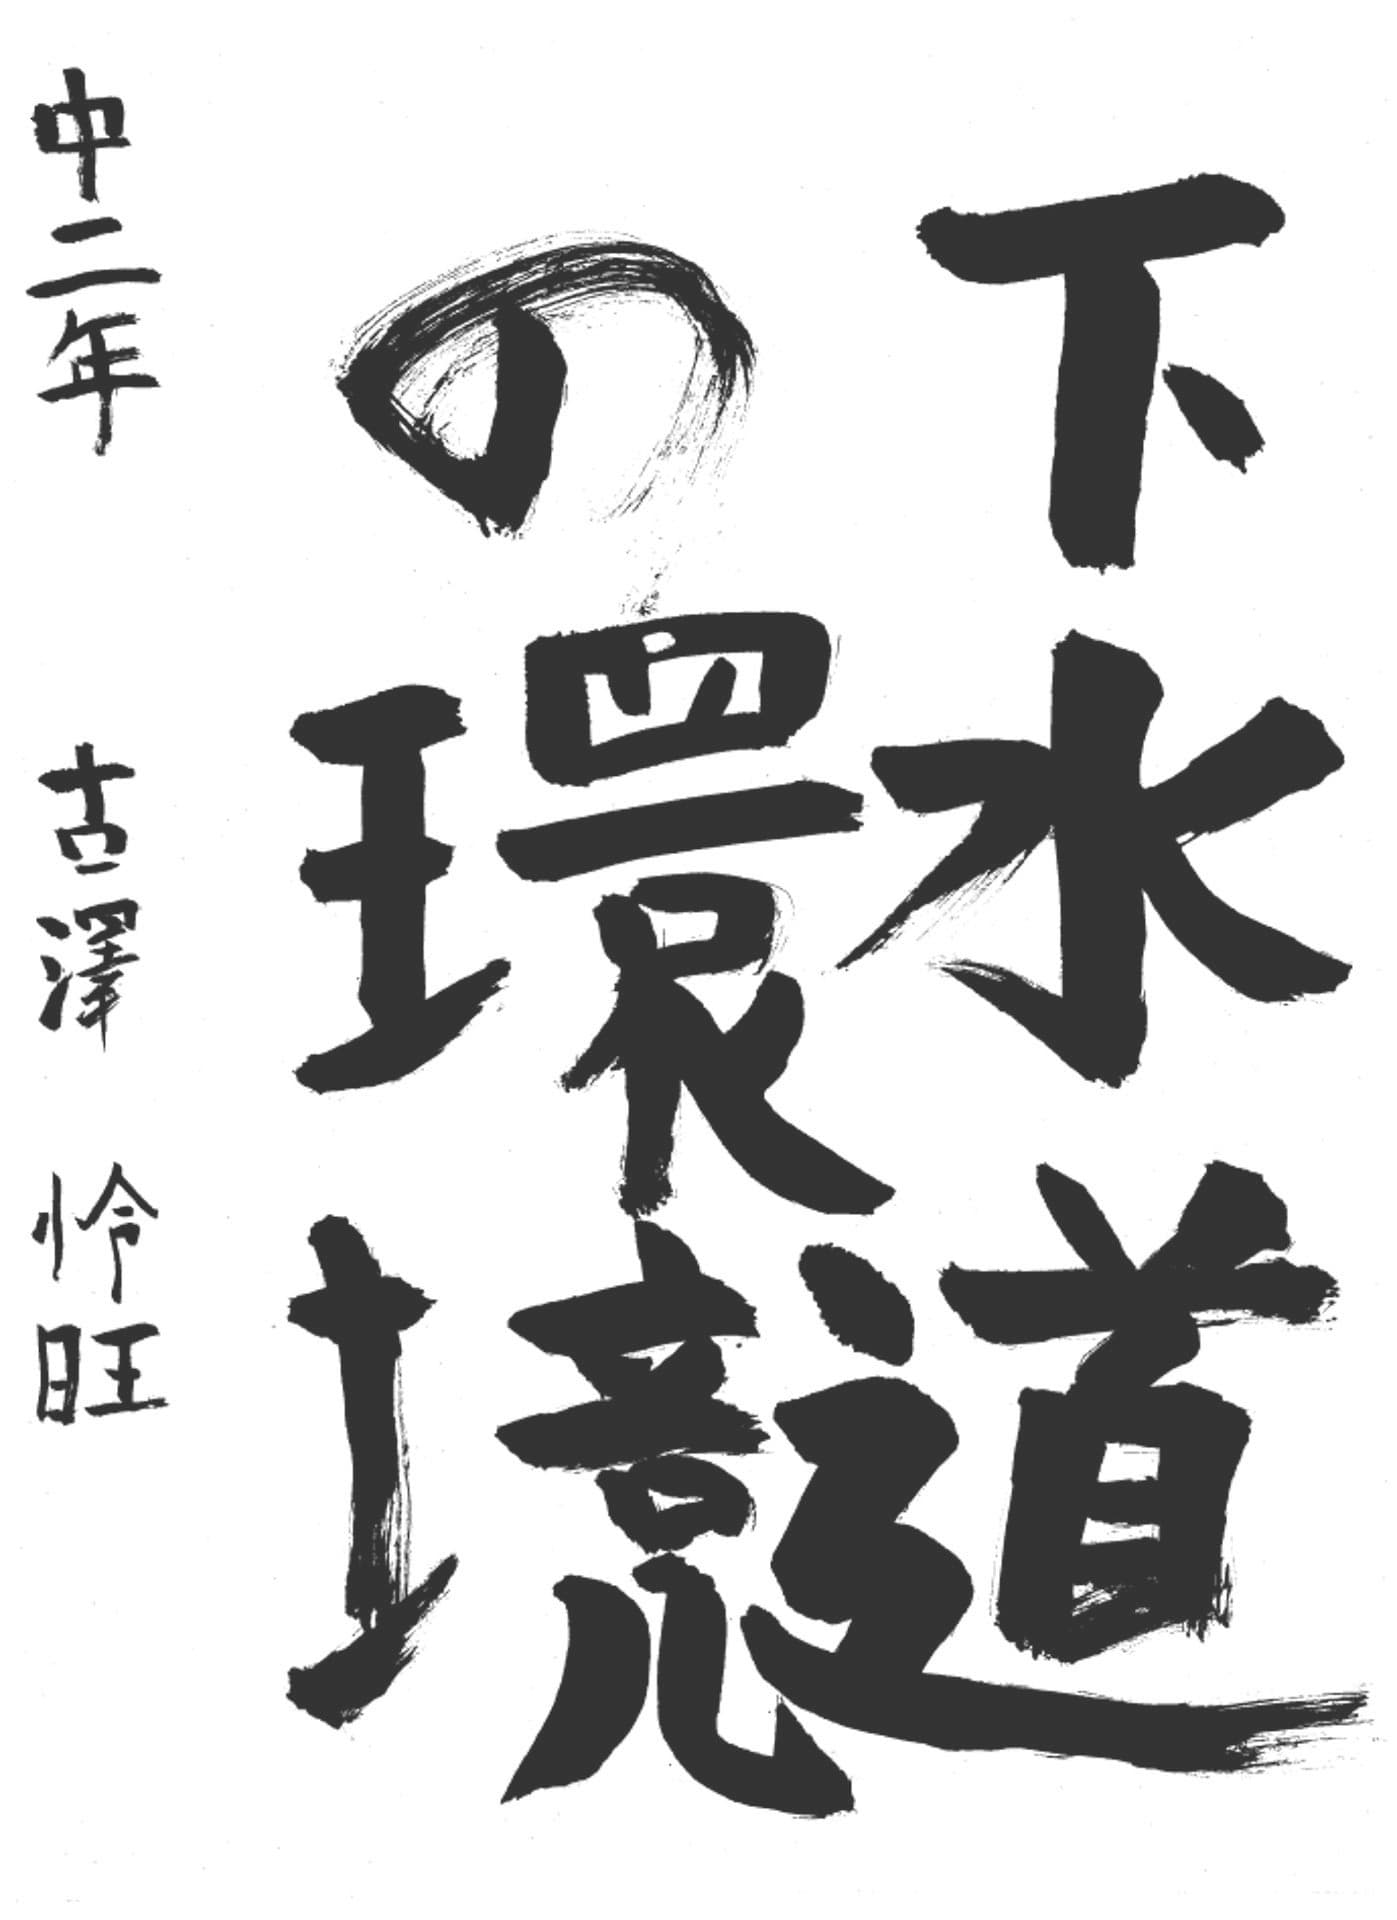 下水道
の環境
中二年 古澤 怜旺